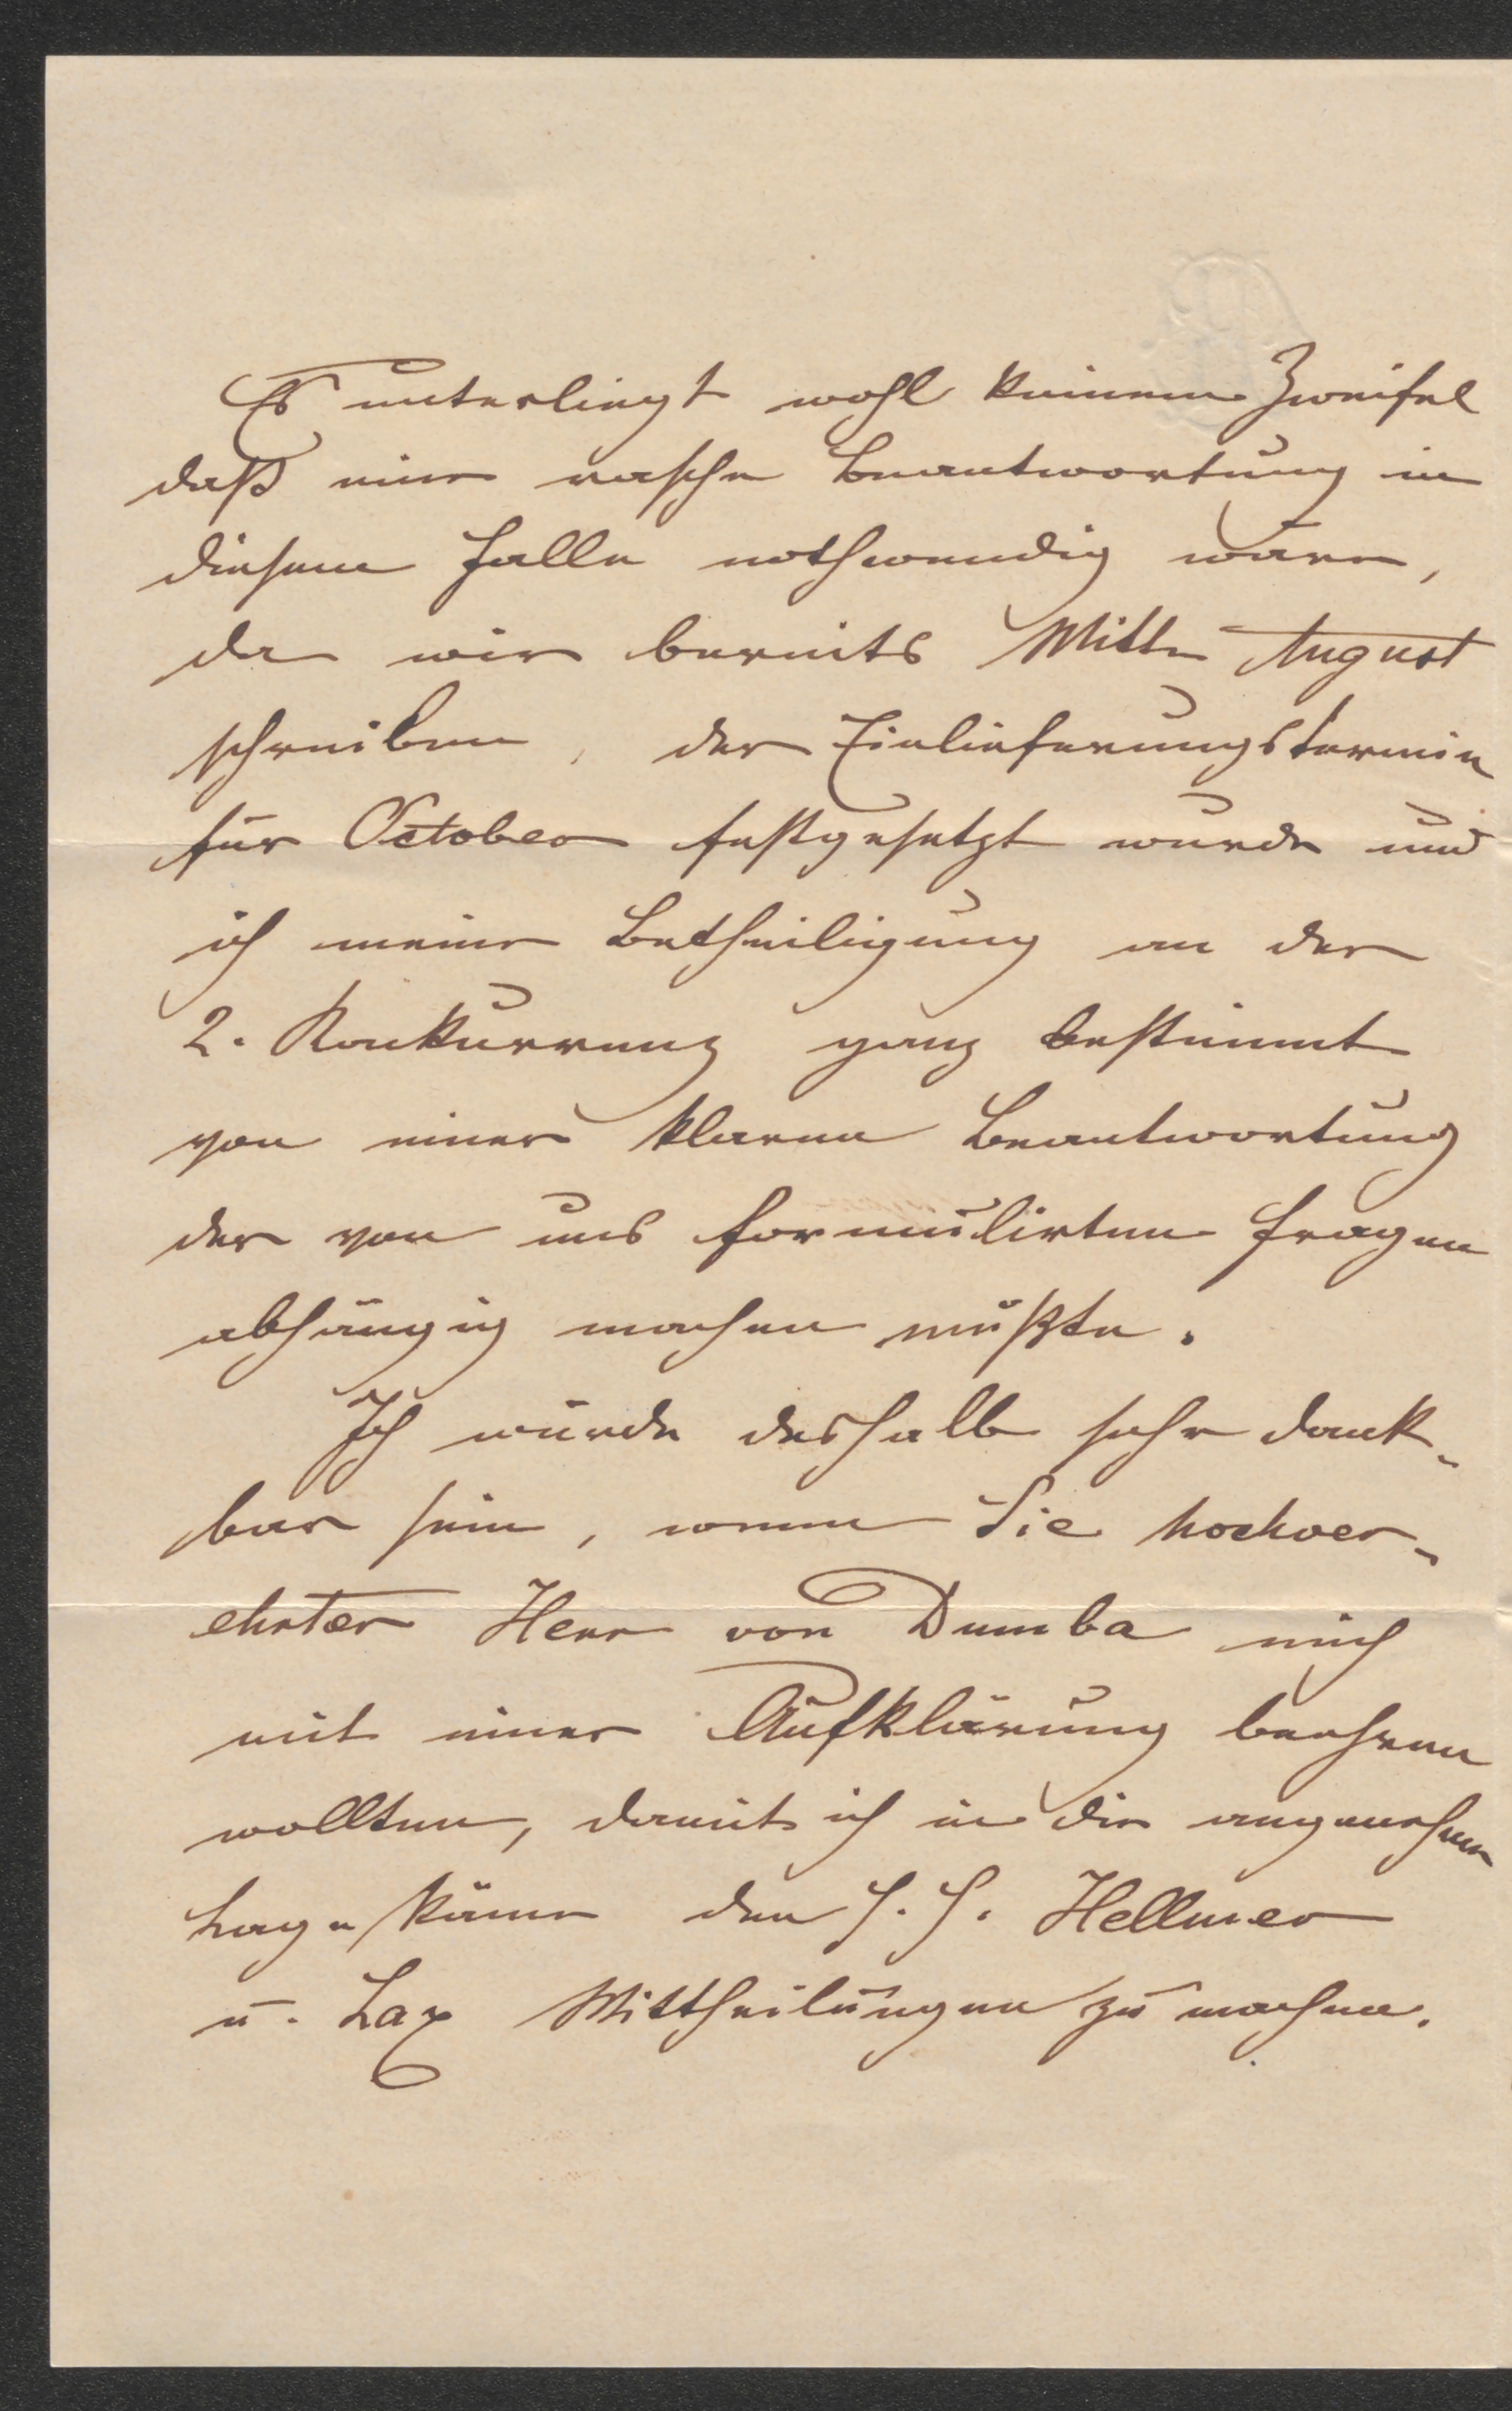 Es unterliegt wohl keinem Zweifel
daß eine rasche Beantwortung in
diesem Falle nothwendig wäre,
da wir bereits Mitte August
schreiben, der Einlieferungstermin
für October festgesetzt wurde und
ich meine Betheiligung an der
2. Konkurrenz ganz bestimmt
von einer klaren Beantwortung
der von uns formulirten Fragen
abhängig machen müßte.
Ich würde deshalb sehr dank-
bar sein, wenn Sie hochver-
ehrter Herr von Dumba mich
mit einer Aufklärung beehren
wollten, damit ich in die angenehme
Lage käme den H. H. Hellmer
u. Lax Mittheilungen zu machen.